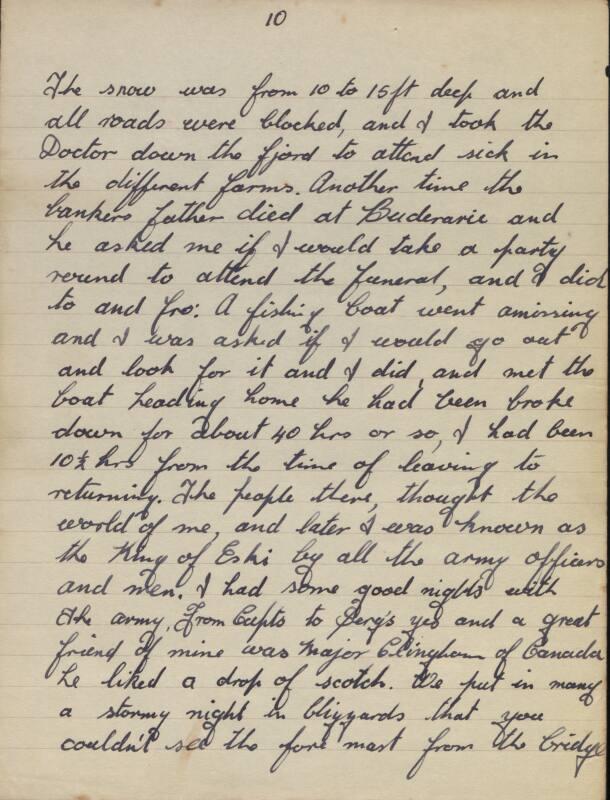 10
The snow was from 10 to 15ft deep and
all roads were blocked, and I took the
Doctor down the fjord to attend sick in
the different farms. Another time the
bankers father died at Buderarie and
he asked me if I would take a party
round to attend the funeral, and I did
to and fro: A fishing boat went amissing
and I was asked if I would go out
and look for it and I did, and met the
boat heading home he had been broke
down for about 40 hrs or so, I had been
10½ hrs from the time of leaving to
returning. The people there, thought the
world of me, and later I was known as
the King of Eski by all the army officers
and men. I had some good nights with
the army, From Capts to Serg's yes and a great
friend of mine was Major Clingham of Canada
he liked a drop of scotch. We put in many
a stormy night in blizzards that you
couldn't see the fore mast from the bridge